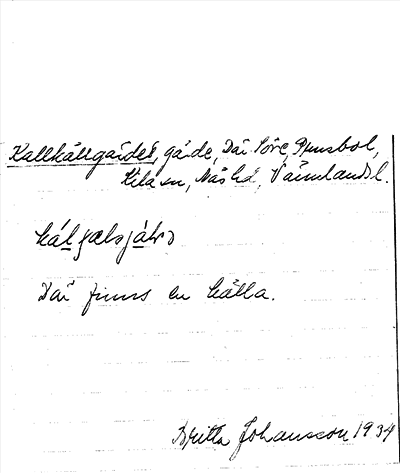 Kallkällgärdet, gärde, Där Söre, Prusbol,
Kila sn, Näs hd, Värmlands l.
kál̲ɟælsjál̲ɹ
Där finns en källa.
Britta Johansson 1934